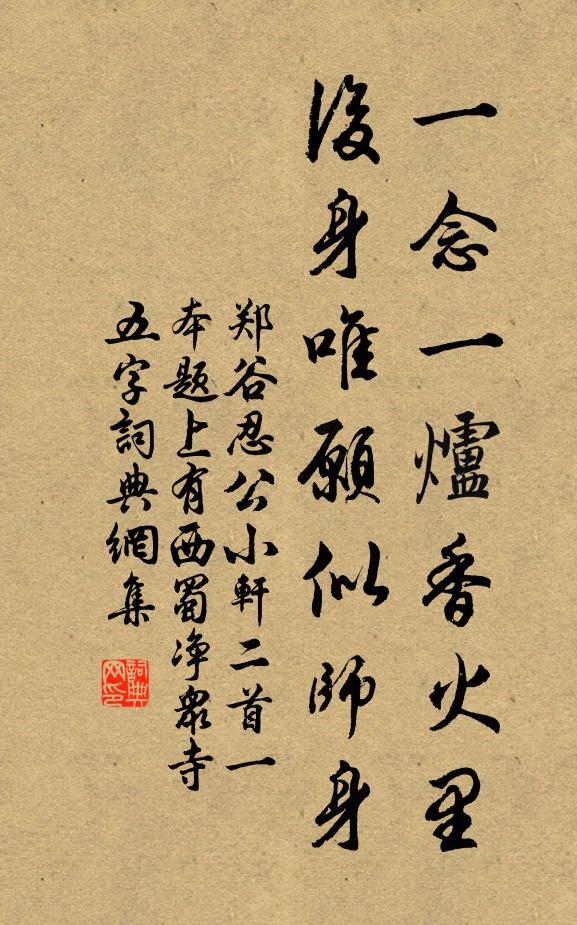 一念一爐香火里
後身唯願似師身
郑谷忍公小軒二首一
本題上有西蜀净衆寺
五字詞典網集
詞典网印